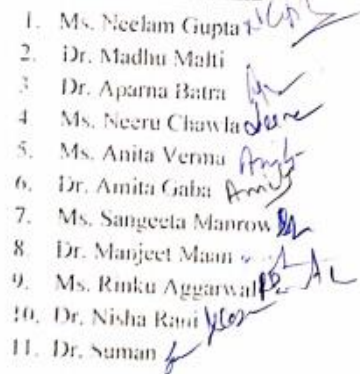 1. Ms. Neelam Gupta
2. Dr. Madhu Malti
3 Dr. Aparna Batra
4 Ms. Neeru Chawla
5. Ms. Anita Verma
6. Dr. Amita Gaba
7. Ms. Sangeeta Manrow
8. Dr. Manjeet Maan
9. Ms. Rinku Aggarwal
10. Dr. Nisha Rani
11. Dr. Suman